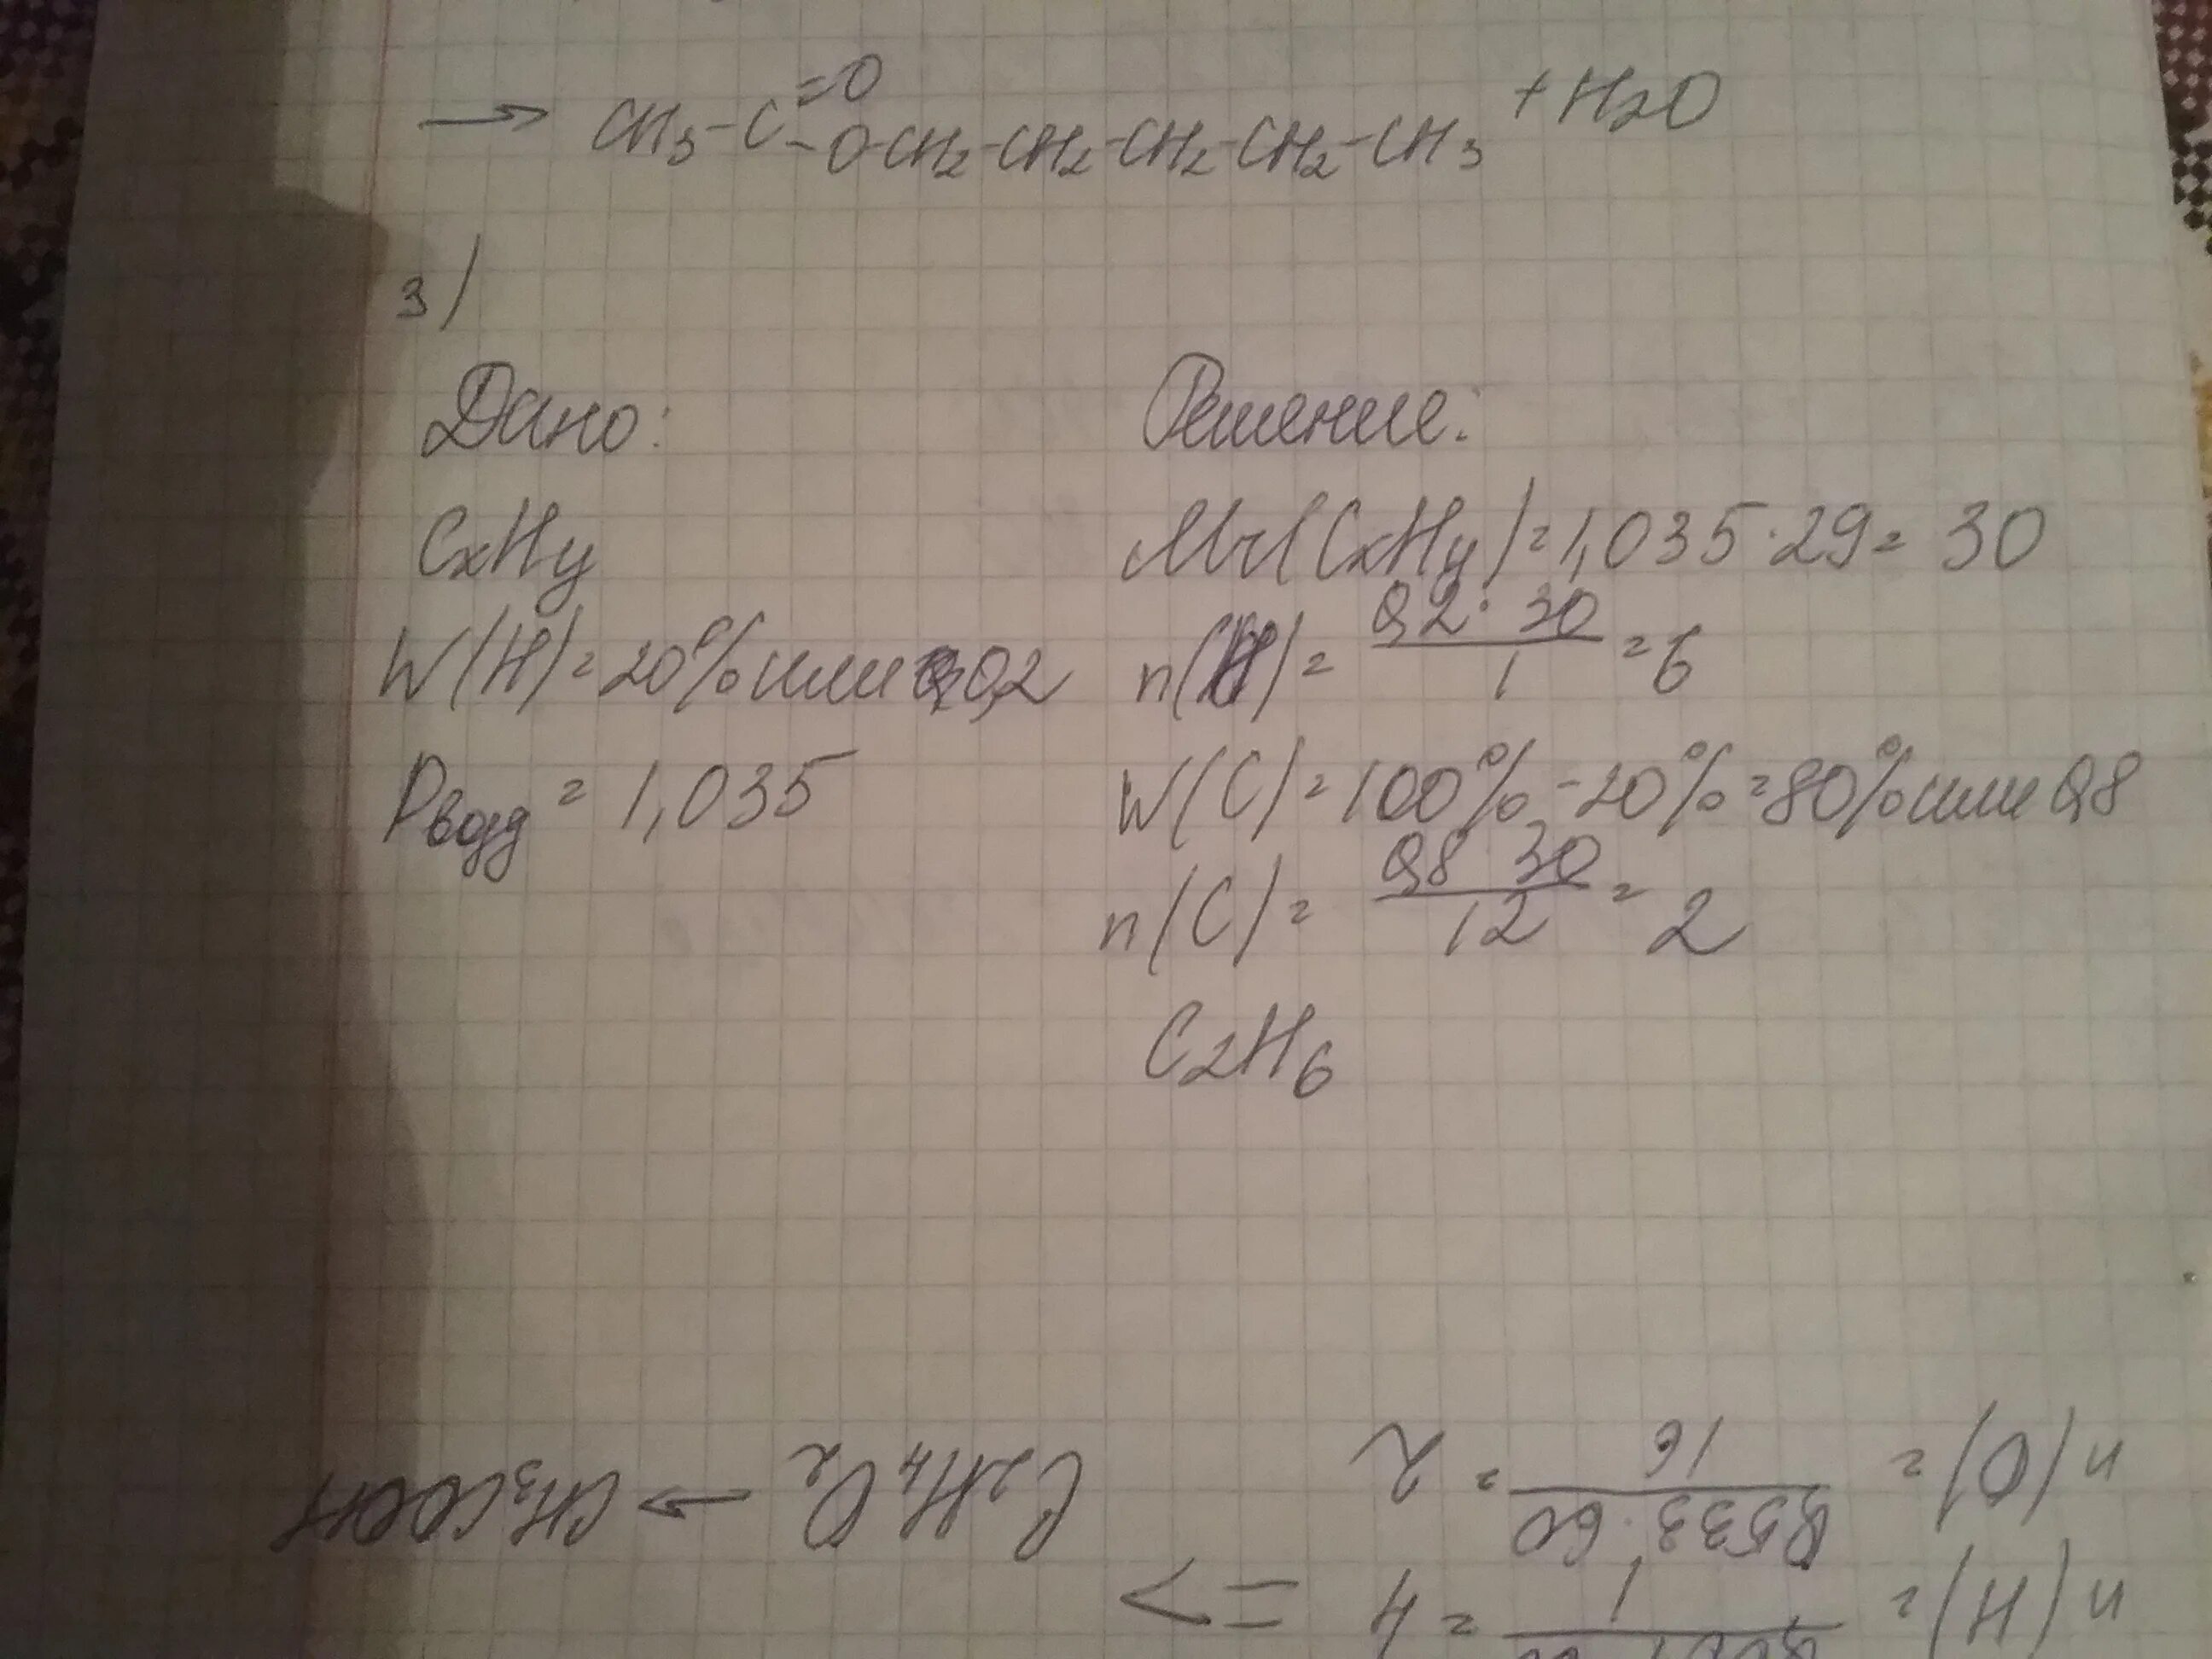 → CH3-C=O-OCH2-CH2-CH2-CH2-CH3 + H2O
3)
Дано:
CxHy
W(H)=20% или 0,2
Pвозд = 1,035
Решение:
Mr(CxHy)=1,035·29=30
n(H)= 0,2·30/1 =6
W(C)=100%-20%=80% или 0,8
n(C)= 0,8 30/12 = 2
C2H6
n(H)= /1 =4 =>
n(O)= 0,533·60/16 = 2
C2H4O2 → CH3COOH